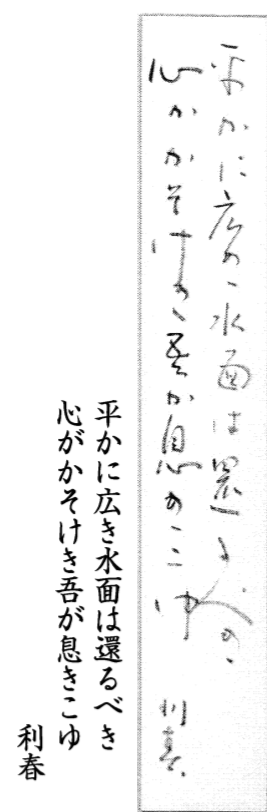 平かに広き水面は還るべき
心かかそけき吾が息きこゆ
利春
平かに広き水面は還るべき
心がかそけき吾が息きこゆ
利春